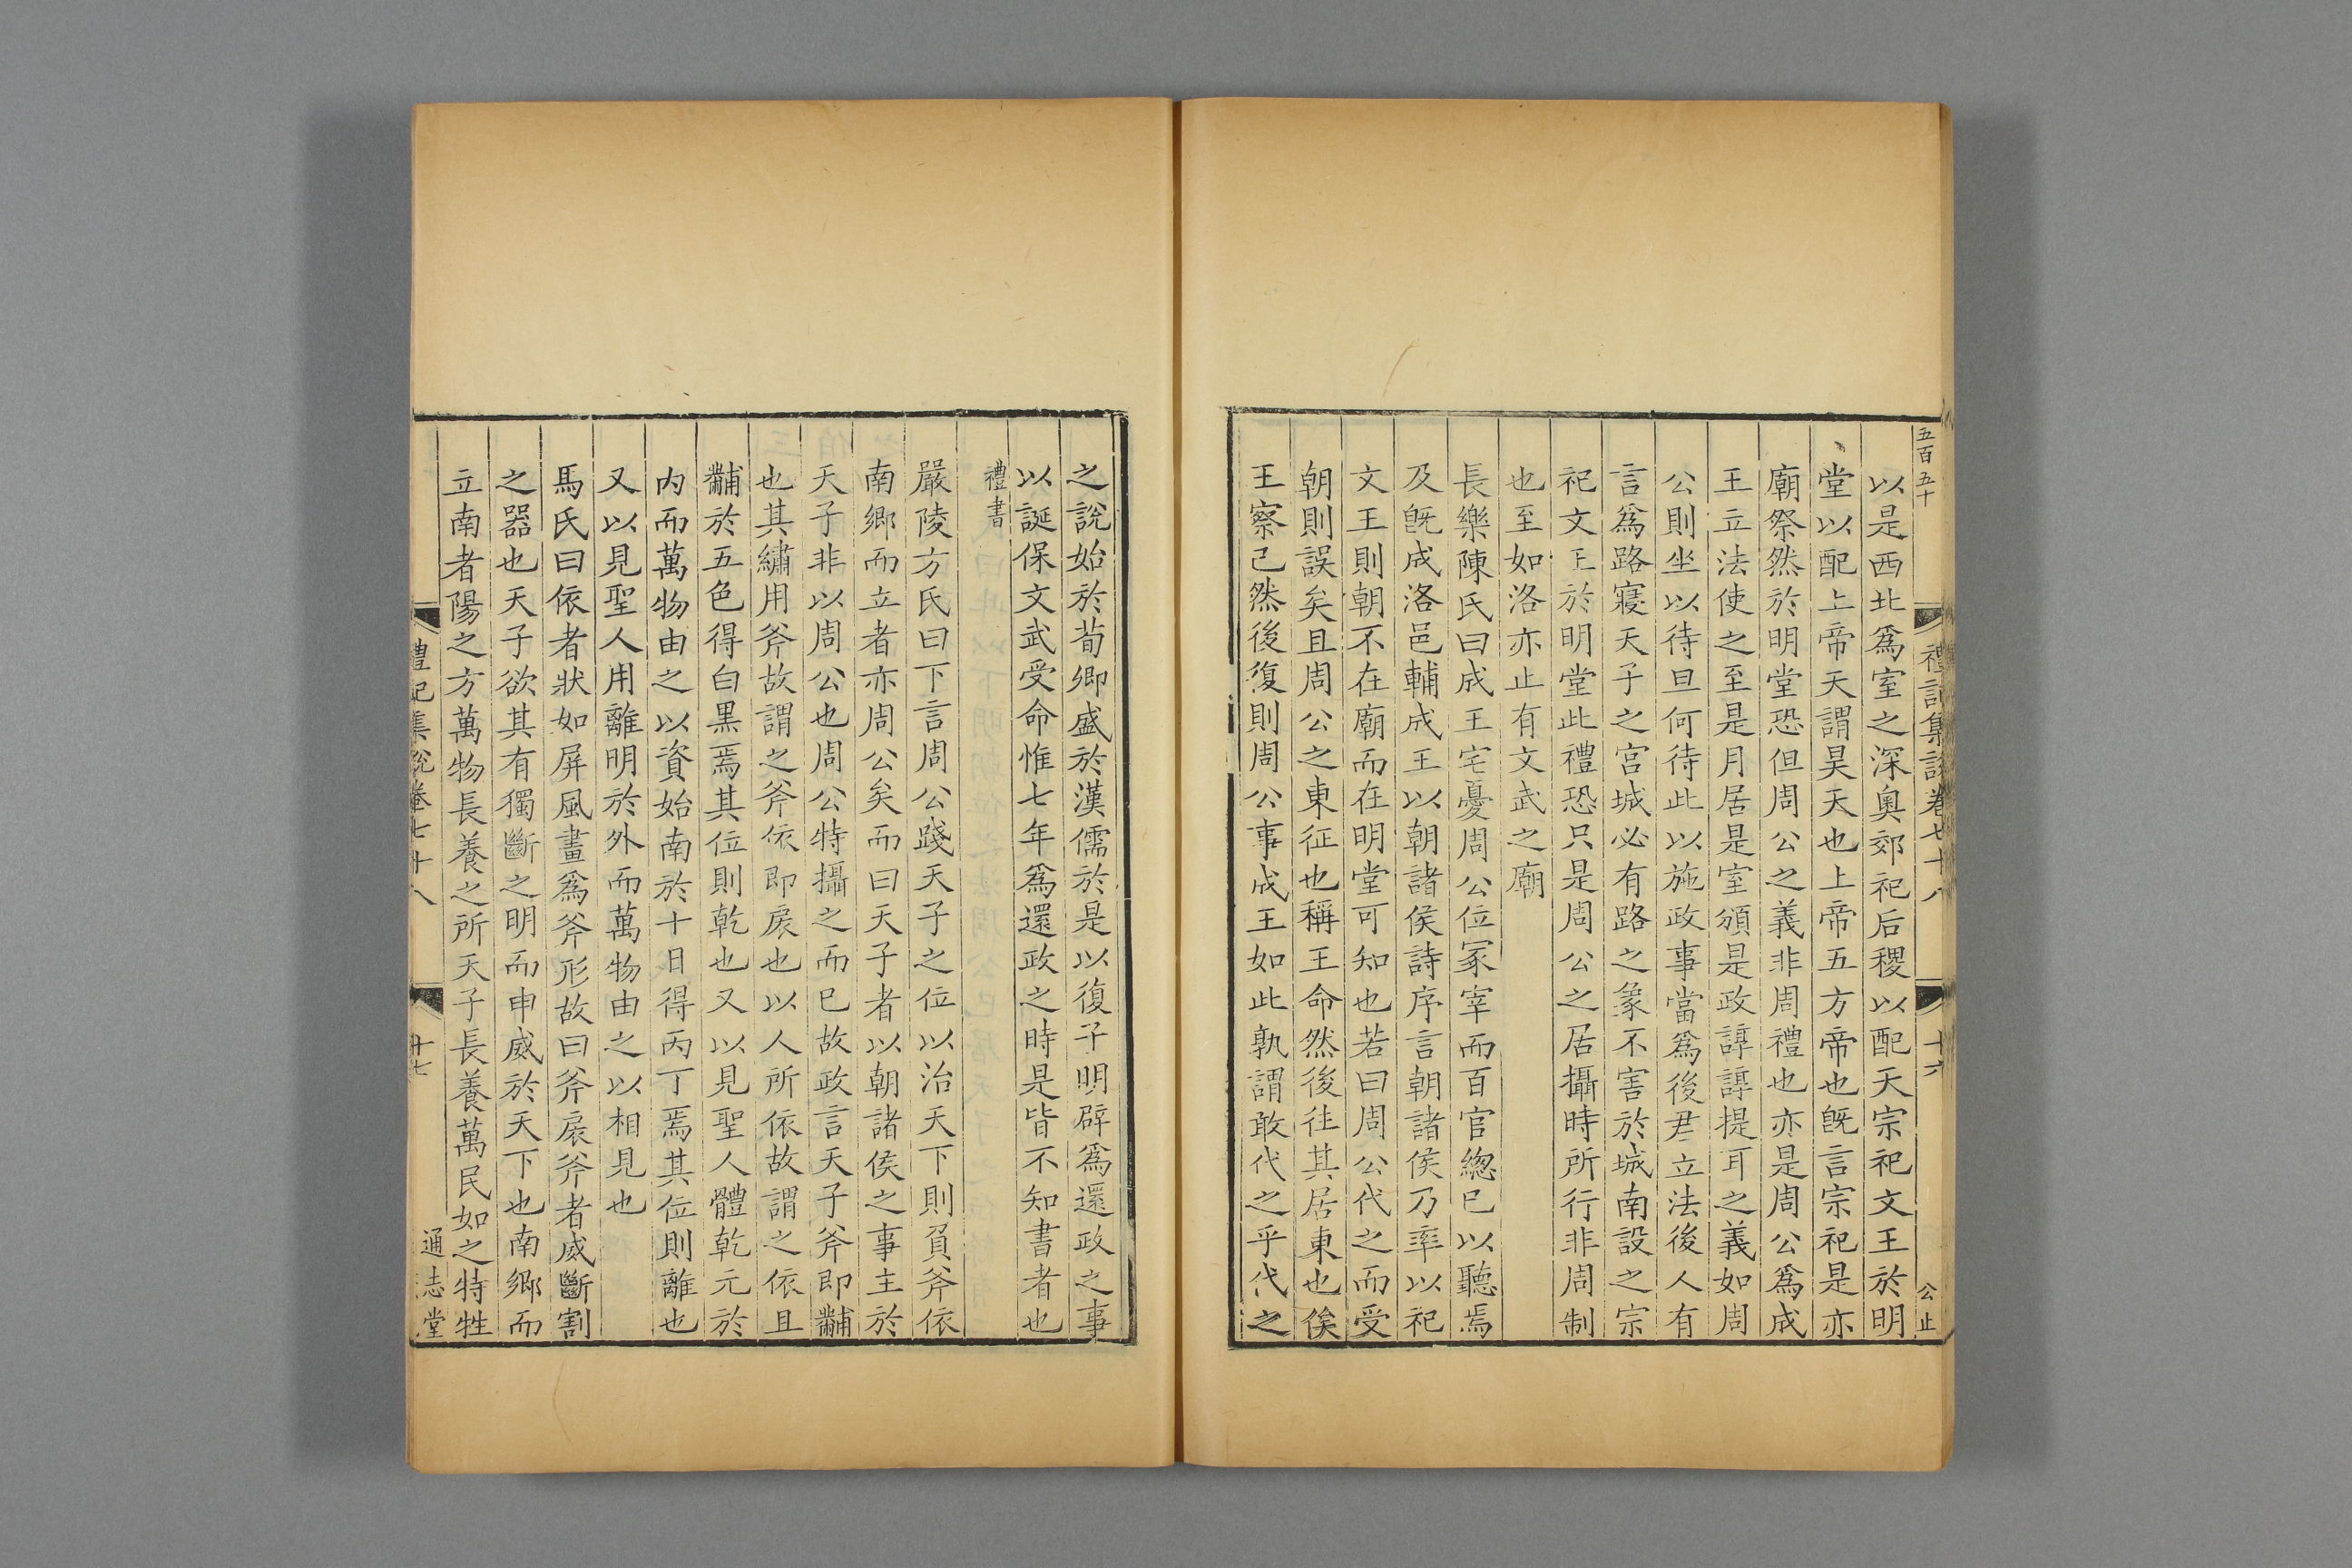 五百五十
禮記集說卷七十八
十六
公止
以是西北爲室之深奥郊祀后稷以配天宗祀文王於明
堂以配上帝天謂昊天也上帝五方帝也旣言宗祀是亦
廟祭然於明堂恐但周公之義非周禮也亦是周公爲成
王立法使之至是月居是室頒是政諄諄提耳之義如周
公則坐以待旦何待此以施政事當爲後君立法後人有
言爲路寢天子之宮城必有路之象不害於城南設之宗
祀文王於明堂此禮恐只是周公之居攝時所行非周制
也至如洛亦止有文武之廟
長樂陳氏曰成王宅憂周公位冢宰而百官緫已以聽焉
及旣成洛邑輔成王以朝諸侯詩序言朝諸侯乃率以祀
文王則朝不在廟而在明堂可知也若曰周公代之而受
朝則誤矣且周公之東征也稱王命然後往其居東也俟
王察己然後復則周公事成王如此孰謂敢代之乎代之
之說始於荀卿盛於漢儒於是以復子明辟爲還政之事
以誕保文武受命惟七年爲還政之時是皆不知書者也
禮書
嚴陵方氏曰下言周公踐天子之位以治天下則負斧依
南鄉而立者亦周公矣而曰天子者以朝諸侯之事主於
天子非以周公也周公特攝之而已故政言天子斧即黼
也其繡用斧故謂之斧依即扆也以人所依故謂之依且
黼於五色得白黑焉其位則乾也又以見聖人體乾元於
内而萬物由之以資始南於十日得丙丁焉其位則離也
又以見聖人用離明於外而萬物由之以相見也
馬氏曰依者狀如屏風畫爲斧形故曰斧扆斧者威斷割
之器也天子欲其有獨斷之明而申威於天下也南鄉而
立南者陽之方萬物長養之所天子長養萬民如之特牲
禮記集說卷七十八
十七
通志堂